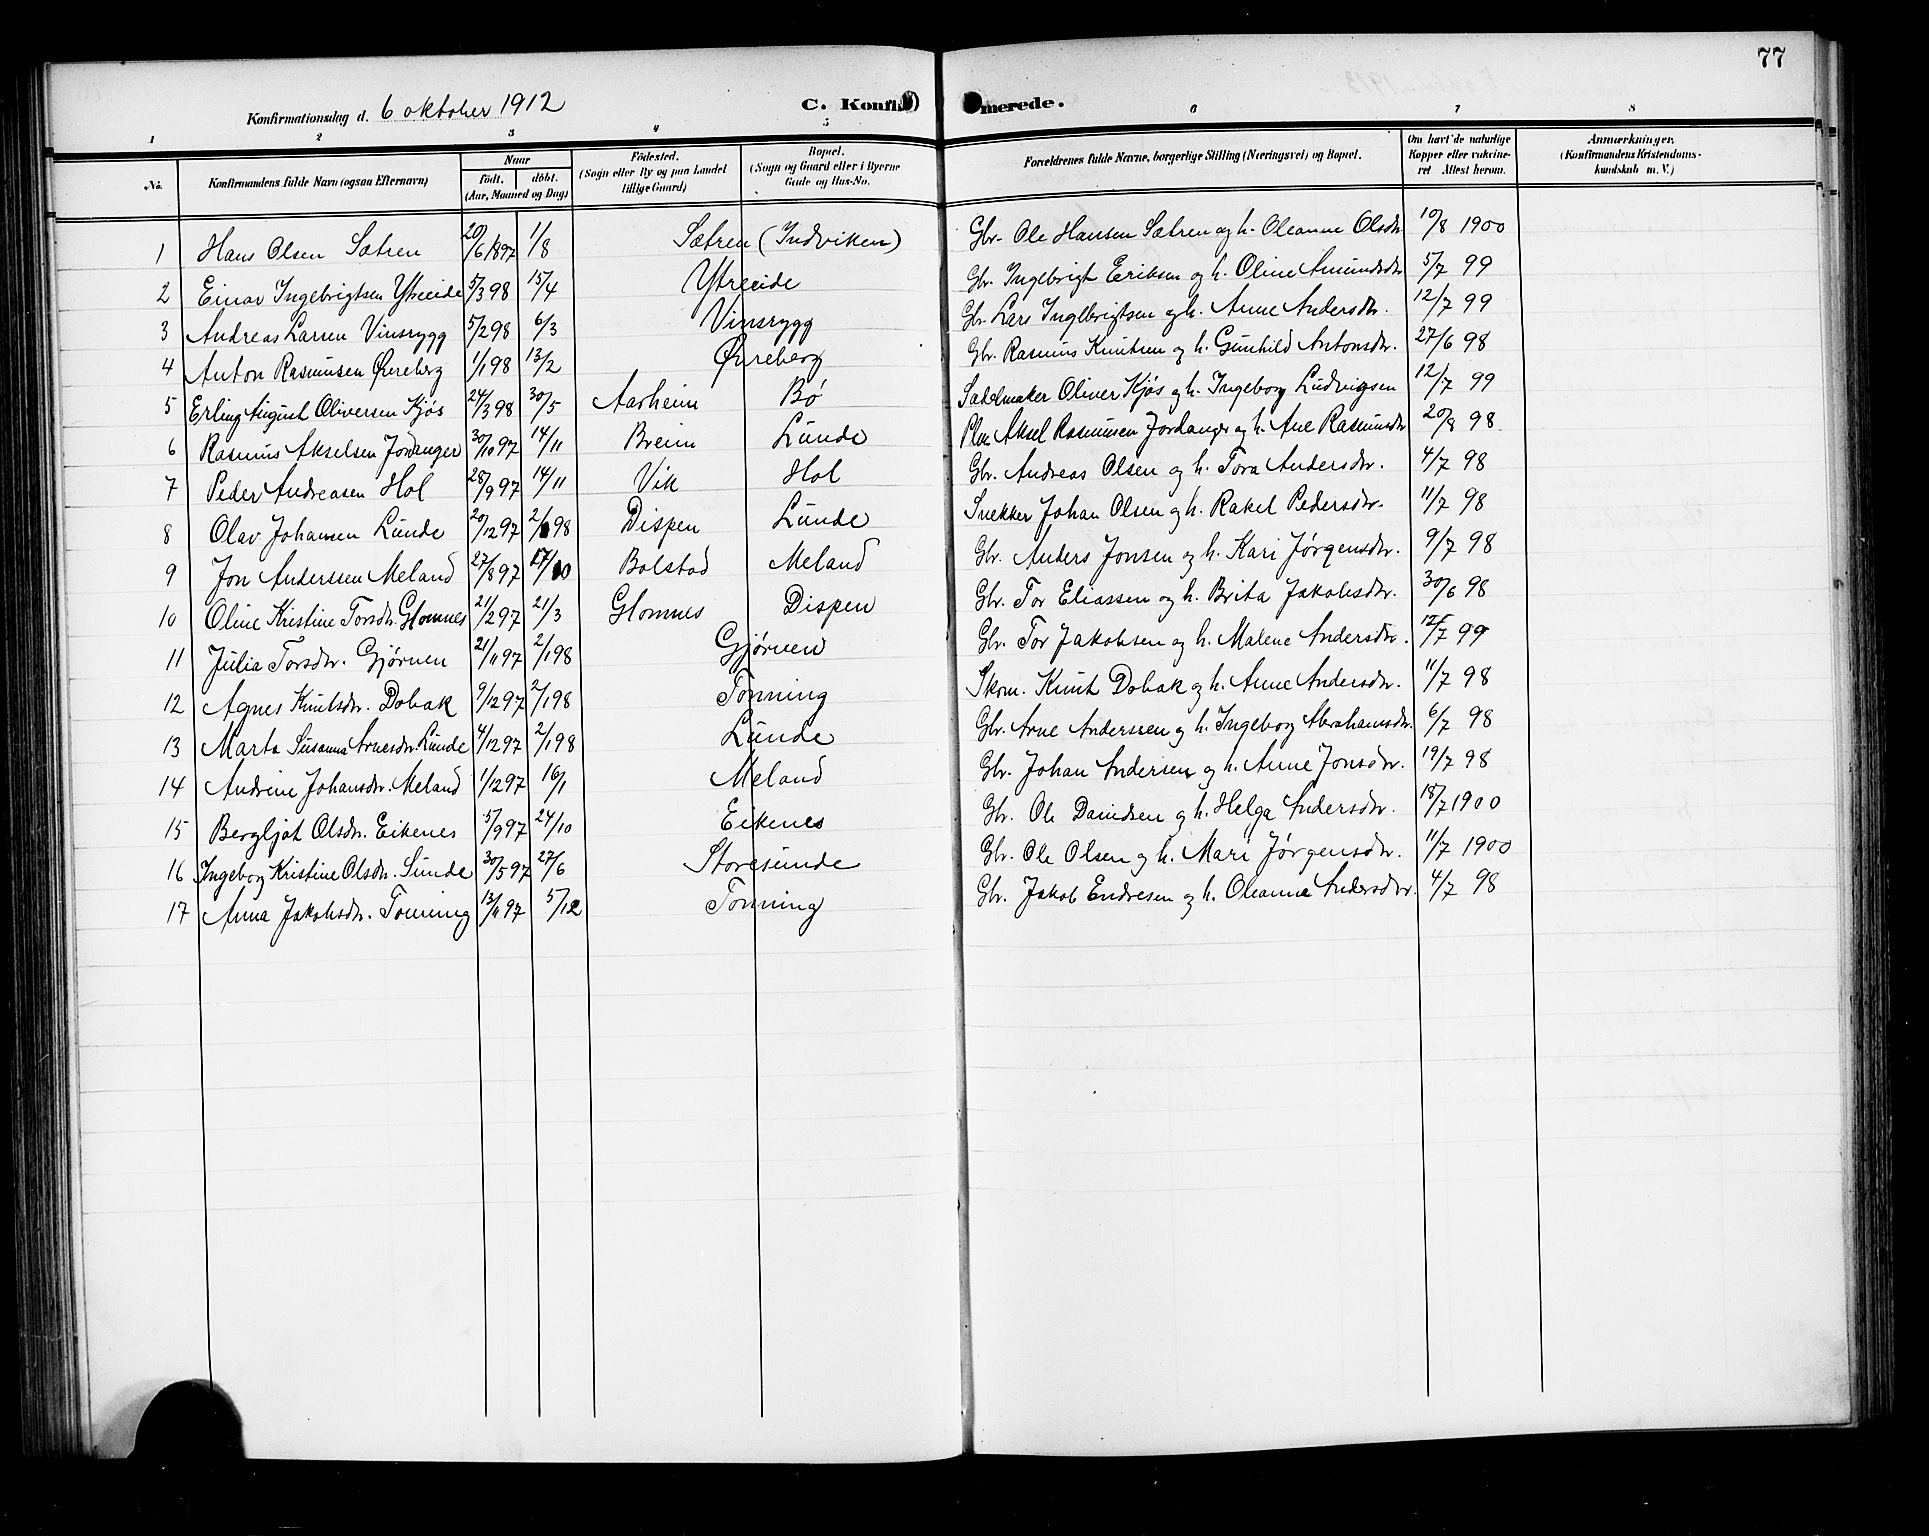 77
Konfirmationsdag d. 6 oktober 1912 C. Konfir merede.
1 2 3 4 5 6 7 8
No. Konfirmandens fulde Navn (ogsaa Efternavn) Naar født. døbt. (Aar, Maaned og Dag) Fødested. (Sogn eller By og paa Landet tillige Gaard) Bopæl. (Sogn og Gaard eller i Byerne Gade og Hus-No. Forældrenes fulde Navne, borgerlige Stilling (Næringsvei) og Bopæl. Om havt de naturlige Kopper eller vaccineret Attest herom. Anmærkninger. (Konfirmandens Kristendomskundskab m. V.)
1 Hans Olsen Sætren 20/6 1897 1/8 Sætren (Indviken) Gbr. Ole Hansen Sætren og h. Oleanne Olsdr. 10/8 1900
2 Einar Ingebrigtsen Ytreeide 5/3 98 15/4 Ytreeide Gbr. Ingebrigt Eriksen og h. Oline Amundsdr. 5/7 99
3 Andreas Larsen Vinsrygg 5/2 98 6/3 Vinsrygg Gbr. Lars Ingebrigtsen og h. Anne Andersdr. 12/7 99
4 Anton Rasmusen Øvreberg 1/1 98 13/2 Øvreberg Gbr. Rasmus Knutsen og h. Gunhild Antonsdr. 27/6 98
5 Erling August Oliversen Kjøs 24/3 98 30/5 Aarheim Bø Sadelmaker Oliver Kjøs og h. Ingeborg Ludvigsen 12/7 99
6 Rasmus Akselsen Jordanger 30/10 97 14/11 Breim Lunde Aksel Rasmusen Jordanger og h. Ane Rasmusdr 20/8 98.
7 Peder Andreasen Hol 28/9 97 14/11 Vik Hol Gbr. Andreas Olsen og h. Tora Andersdr. 4/7 98
8 Olav Johansen Lunde 20/12 97 2/1 98 Dispen Lunde Snekker Johan Olsen og h. Rakel Pedersdr. 11/7 98
9 Jon Anderssen Meland 27/8 97 17/10 Bolstad Meland Gbr. Anders Jonsen og h. Kari Jørgensdr. 9/7 98
10 Oline Kristine Torsdr. Glomnes 21/2 97 21/3 Glomnes Dispen Gbr. Tor Eliassen og h. Brita Jakobsdr. 30/6 98
11 Julia Torsdr. Gjørven 21/11 97 2/1 98 Gjørven Gbr. Tor Jakobsen og h. Malene Andersdr. 12/7 99
12 Agnes Knutsdr. Dobak 9/12 97 2/1 98 Tonning Skom. Knut Dobak og h. Anne Andersdr. 11/7 98
13 Marta Susanna Arnesdr. Lunde 4/12 97 2/1 98 Lunde Gbr. Arne Anderssen og h. Ingeborg Abrahamsdr. 6/7 98
14 Andrine Johansdr. Meland 1/12 97 16/1 Meland Gbr. Johan Andersen og h. Anne Jonsdr. 19/7 98
15 Bergljot Olsdr. Eikenes 5/9 97 24/10 Eikenes Gbr. Ole Davidsen og h. Helga Andersdr. 18/7 1900
16 Ingeborg Kristine Olsdr. Sunde 30/5 97 27/6 Storesunde Gbr. Ole Olsen og h. Mari Jørgensdr. 11/7 1900
17 Anna Jakobsdr. Tonning 13/11 97 5/12 Tonning Gbr. Jakob Endresen og h. Oleanna Andersdr. 4/7 98